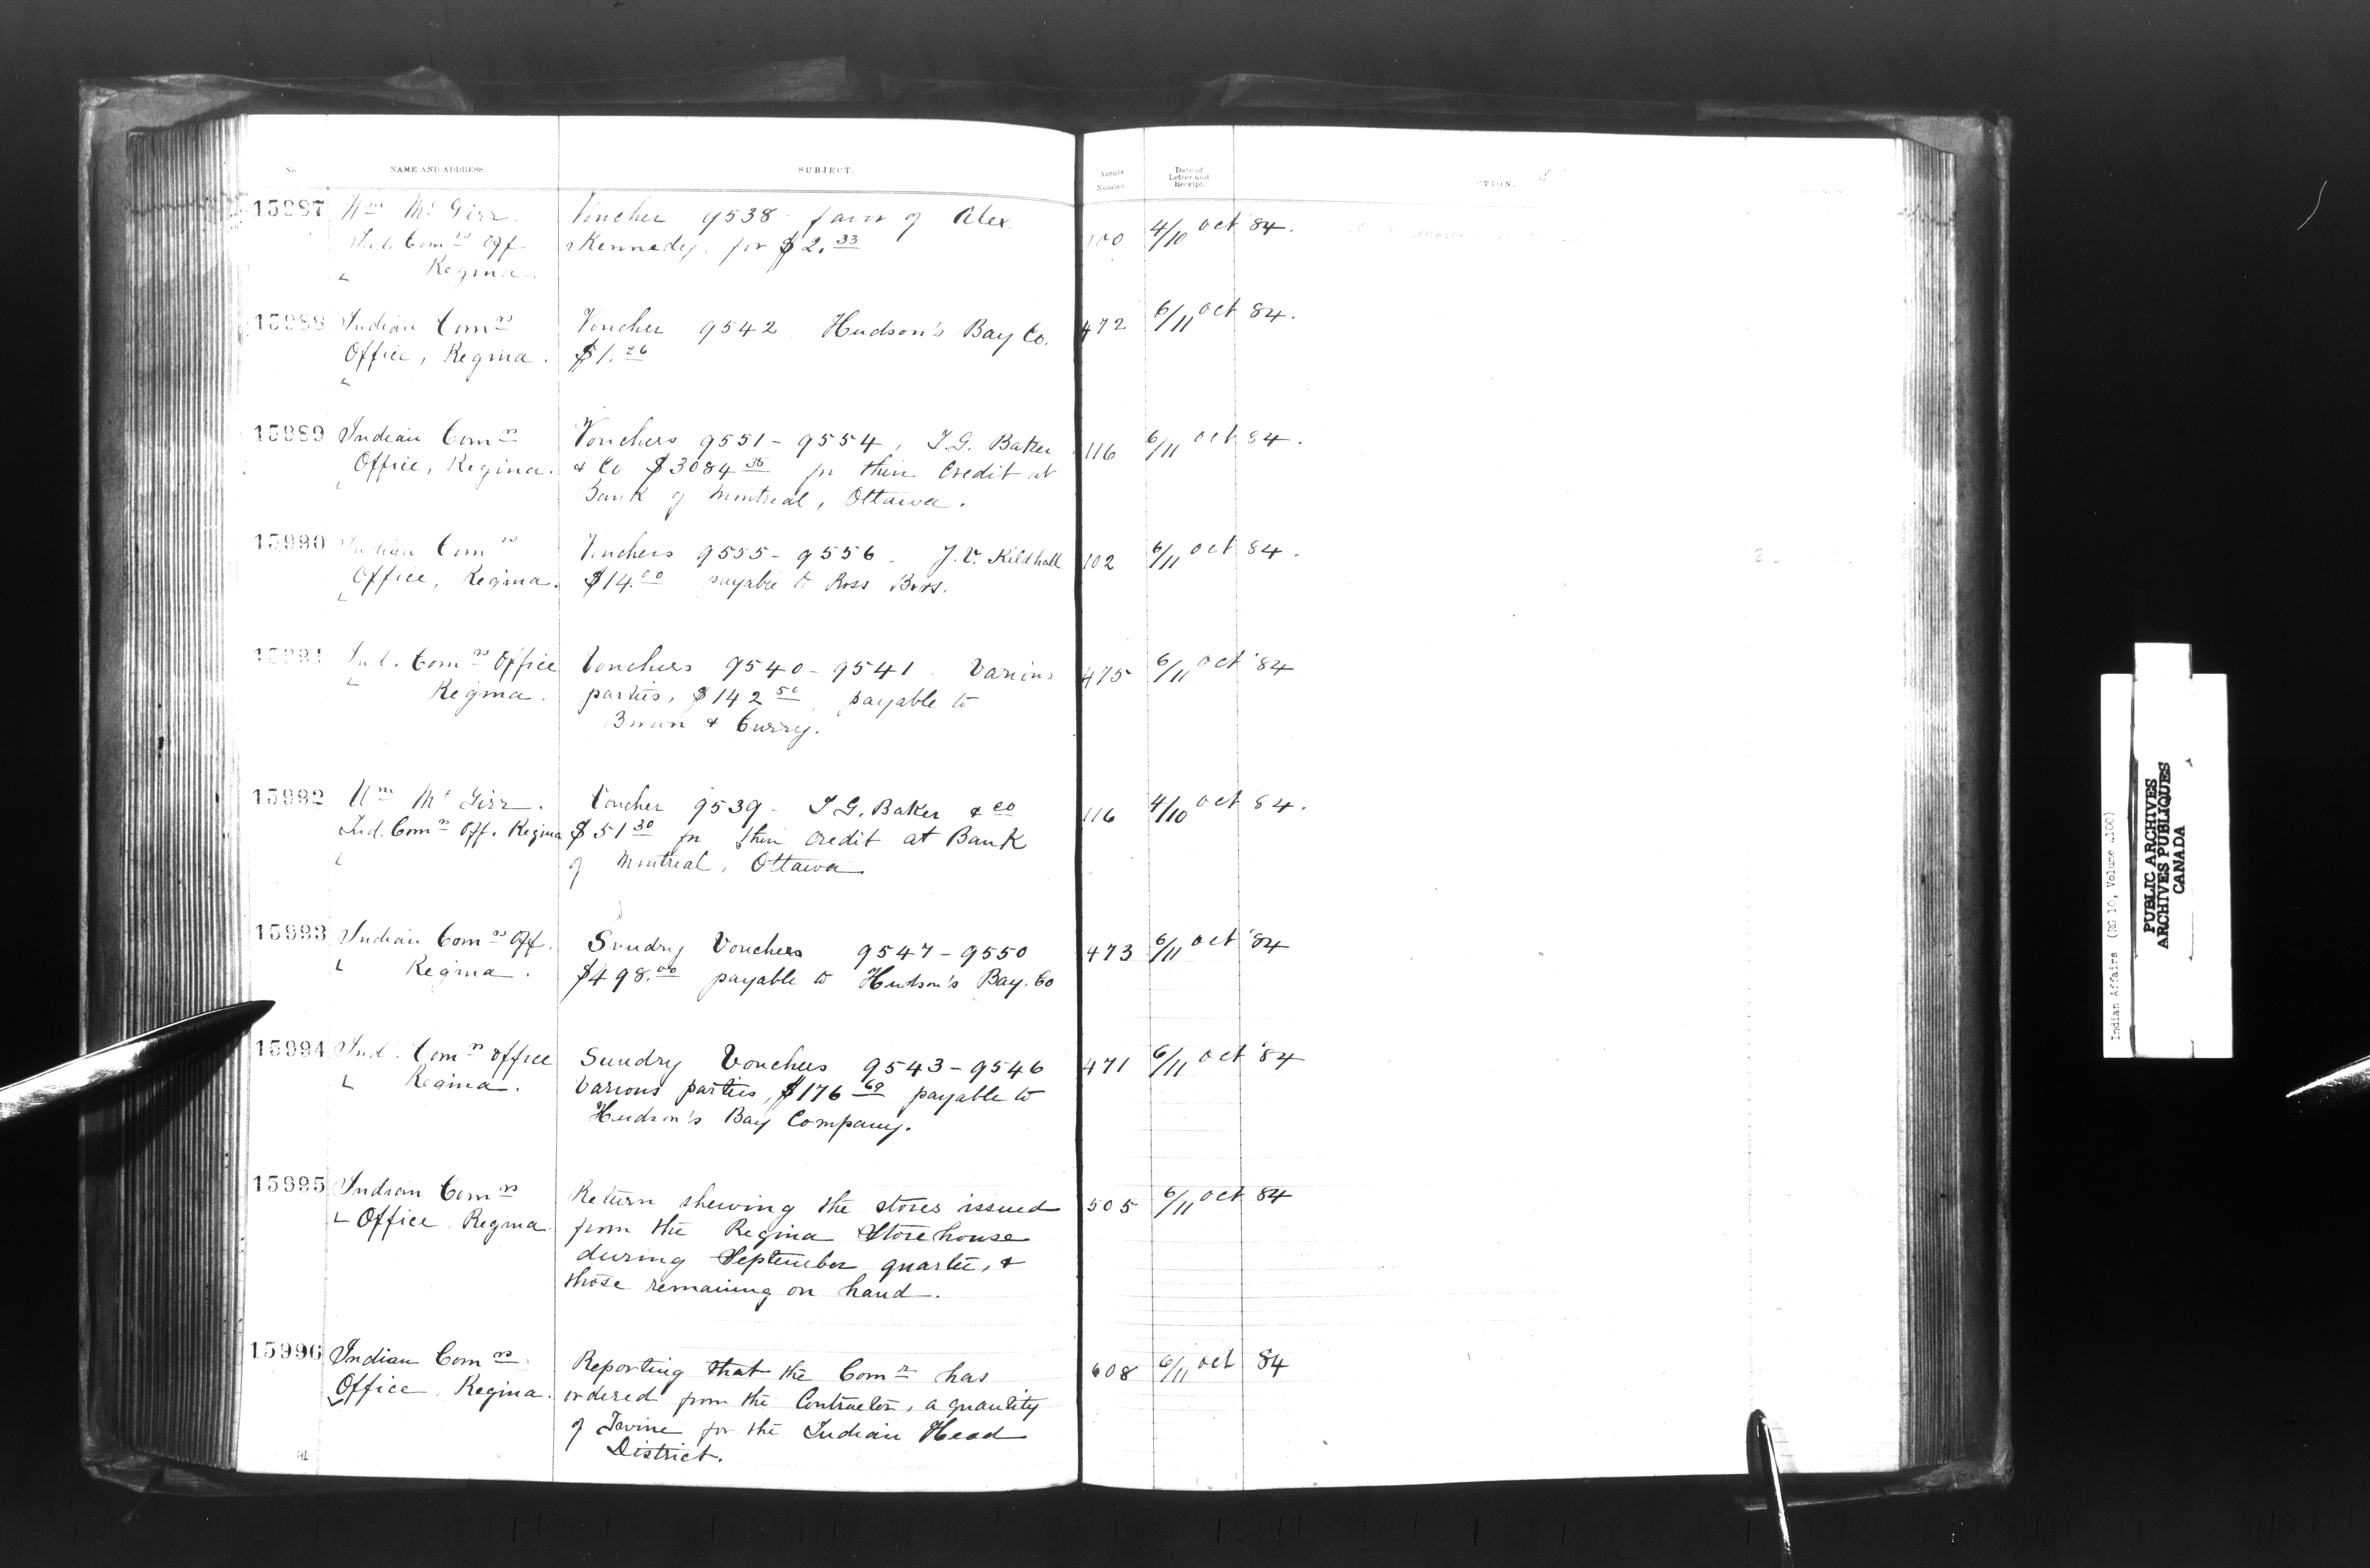 No.
NAME AND ADDRESS.
SUBJECT.
Agents Number.
Date of Letter and Receipt.
CTION.
15987 Wm McGirr. Voucher 9538 favor of Alex 100 4/10 Oct 84.
Ind. Comrs Off Kennedy. for $2.33
Regina.
15988 Indian Comrs Voucher 9542 Hudson's Bay Co. 472 6/11 Oct 84.
Office, Regina. $1.26
15989 Indian Comrs Vouchers 9551-9554, I.G. Baker 116 6/11 Oct 84.
Office, Regina. & Co $3084.35 for their Credit at
Bank of Montreal, Ottawa.
15990 Indian Comrs Vouchers 9555-9556. J.V. Kildhall 102 6/11 Oct 84.
Office, Regina. $14.00 payable to Ross Bros.
15991 Ind. Comrs Office Vouchers 9540-9541. Various 475 6/11 Oct '84
Regina. parties, $142.50, payable to
Brown & Curry.
15992 Wm McGirr. Voucher 9539- I.G. Baker & Co 116 4/10 Oct 84.
Ind. Comrs Off. Regina $51.30 for their credit at Bank
of Montreal, Ottawa
15993 Indian Comrs Off. Sundry Vouchers 9547-9550 473 6/11 Oct '84
Regina. $498.00 payable to Hudson's Bay. Co
15994 Ind. Comrs Office Sundry Vouchers 9543-9546 471 6/11 Oct '84
Regina. Various parties, $176.69 payable to
Hudson's Bay Company.
15995 Indian Comrs Return shewing the stores issued 505 6/11 Oct 84
Office Regina from the Regina Storehouse
during September quarter, &
those remaining on hand.
15996 Indian Comrs Reporting that the Comr has 608 6/11 Oct 84
Office, Regina. ordered from the Contractor, a quantity
of Twine for the Indian Head
District.
Indian Affairs (RG 10, Volume 1100)
PUBLIC ARCHIVES
ARCHIVES PUBLIQUES
CANADA